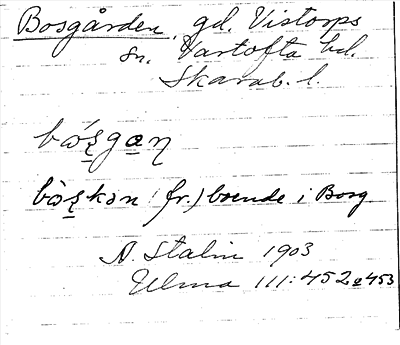 Bosgården, gd. Vistorps
sn. Vartofta hd.
Skarab. l.
bo̊s̱ga̱n
bòs̱kən (fr.) boende i Borg
N. Stalin 1903
Ulma 111:452 o 453